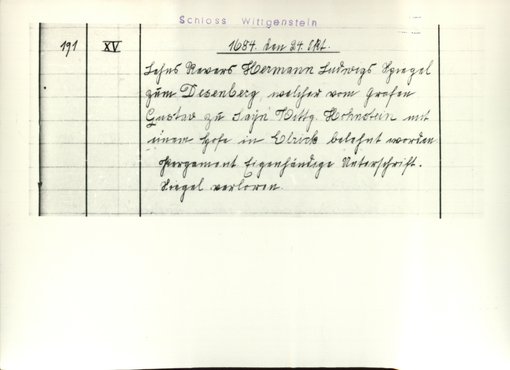 Schloss Wittgenstein
191 XV 1684. den 24. Okt.
Lehns Revers Hermann Ludwigs Spiegel
zum Desenberg, welcher vom Grafen
Gustav zu Sayn Wittg. Hohnstein mit
einem Hofe in Elrick belehnt worden
Pergament Eigenhändige Unterschrift.
Siegel verloren.